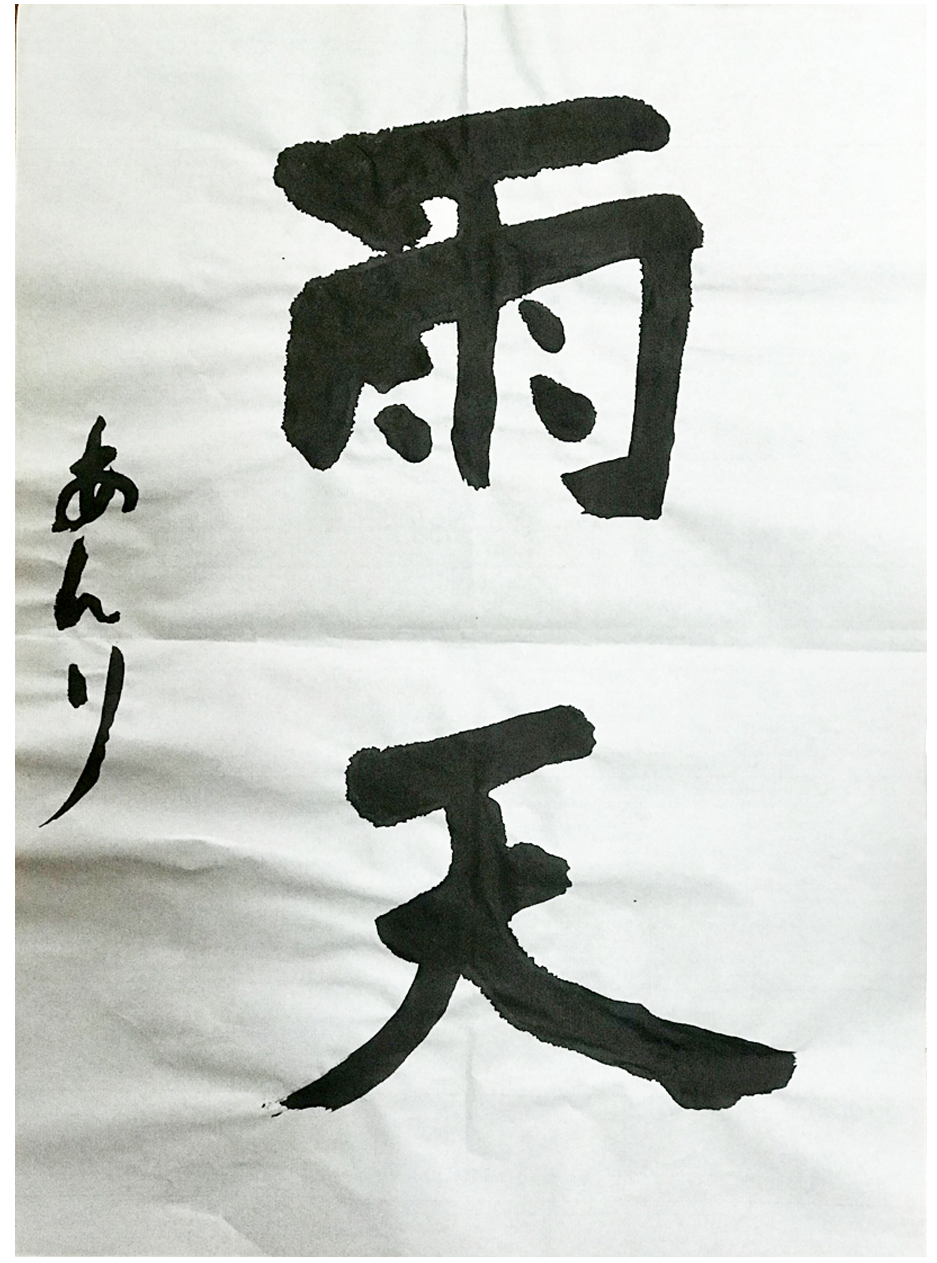 雨天
あんり